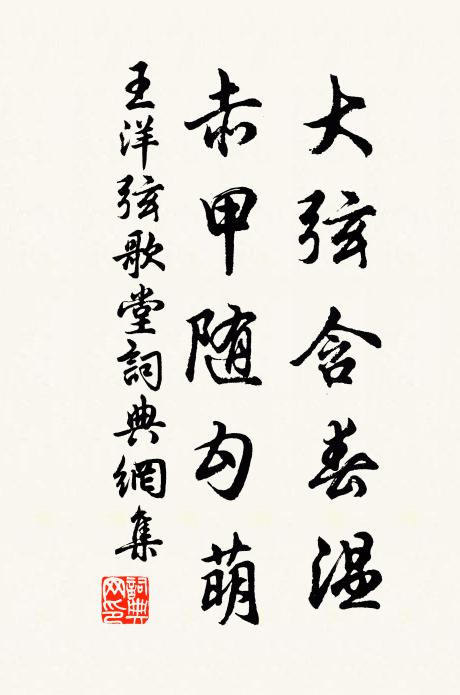 大弦含春温
赤甲随勾萌
王洋弦歌堂詞典網集
詞典网印